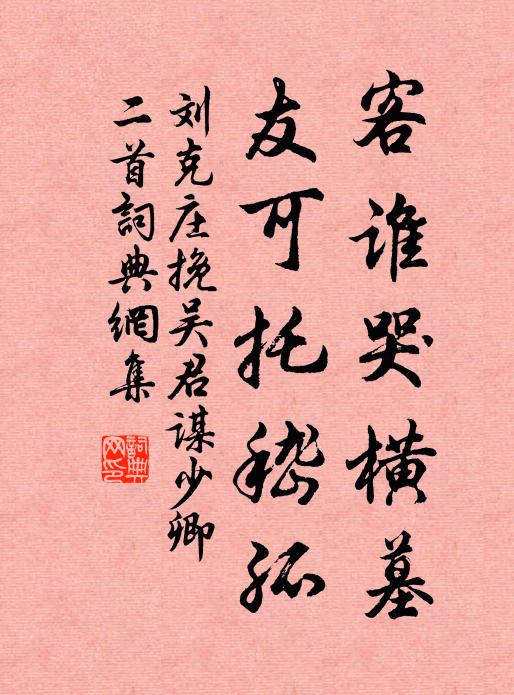 客谁哭橫墓
友可托嵇孤
刘克庄挽吴君谋少卿
二首詞典網集
詞典网印